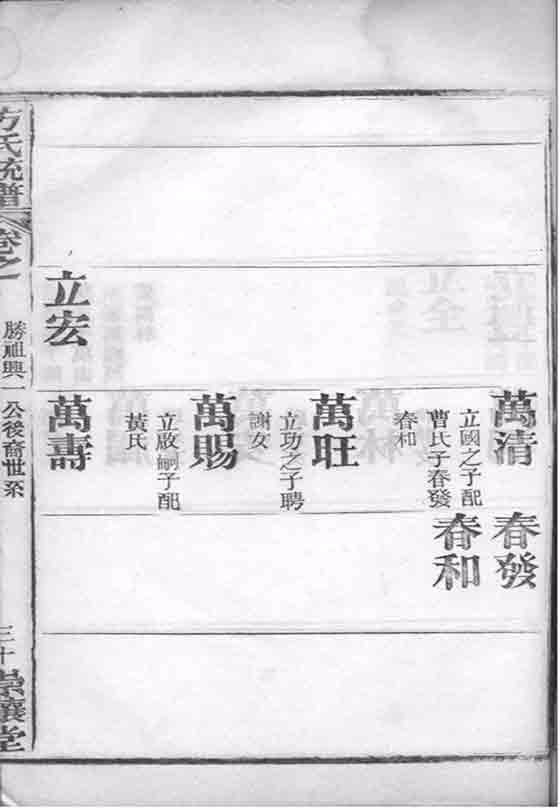 萬清
立國之子配
曹氏子春發
春和
萬旺
立功之子聘
謝女
萬賜
立啟嗣子配
黃氏
立宏
萬壽
春發
春和
方氏統譜
卷之一
勝祖興一公後裔世系
三十
崇讓堂